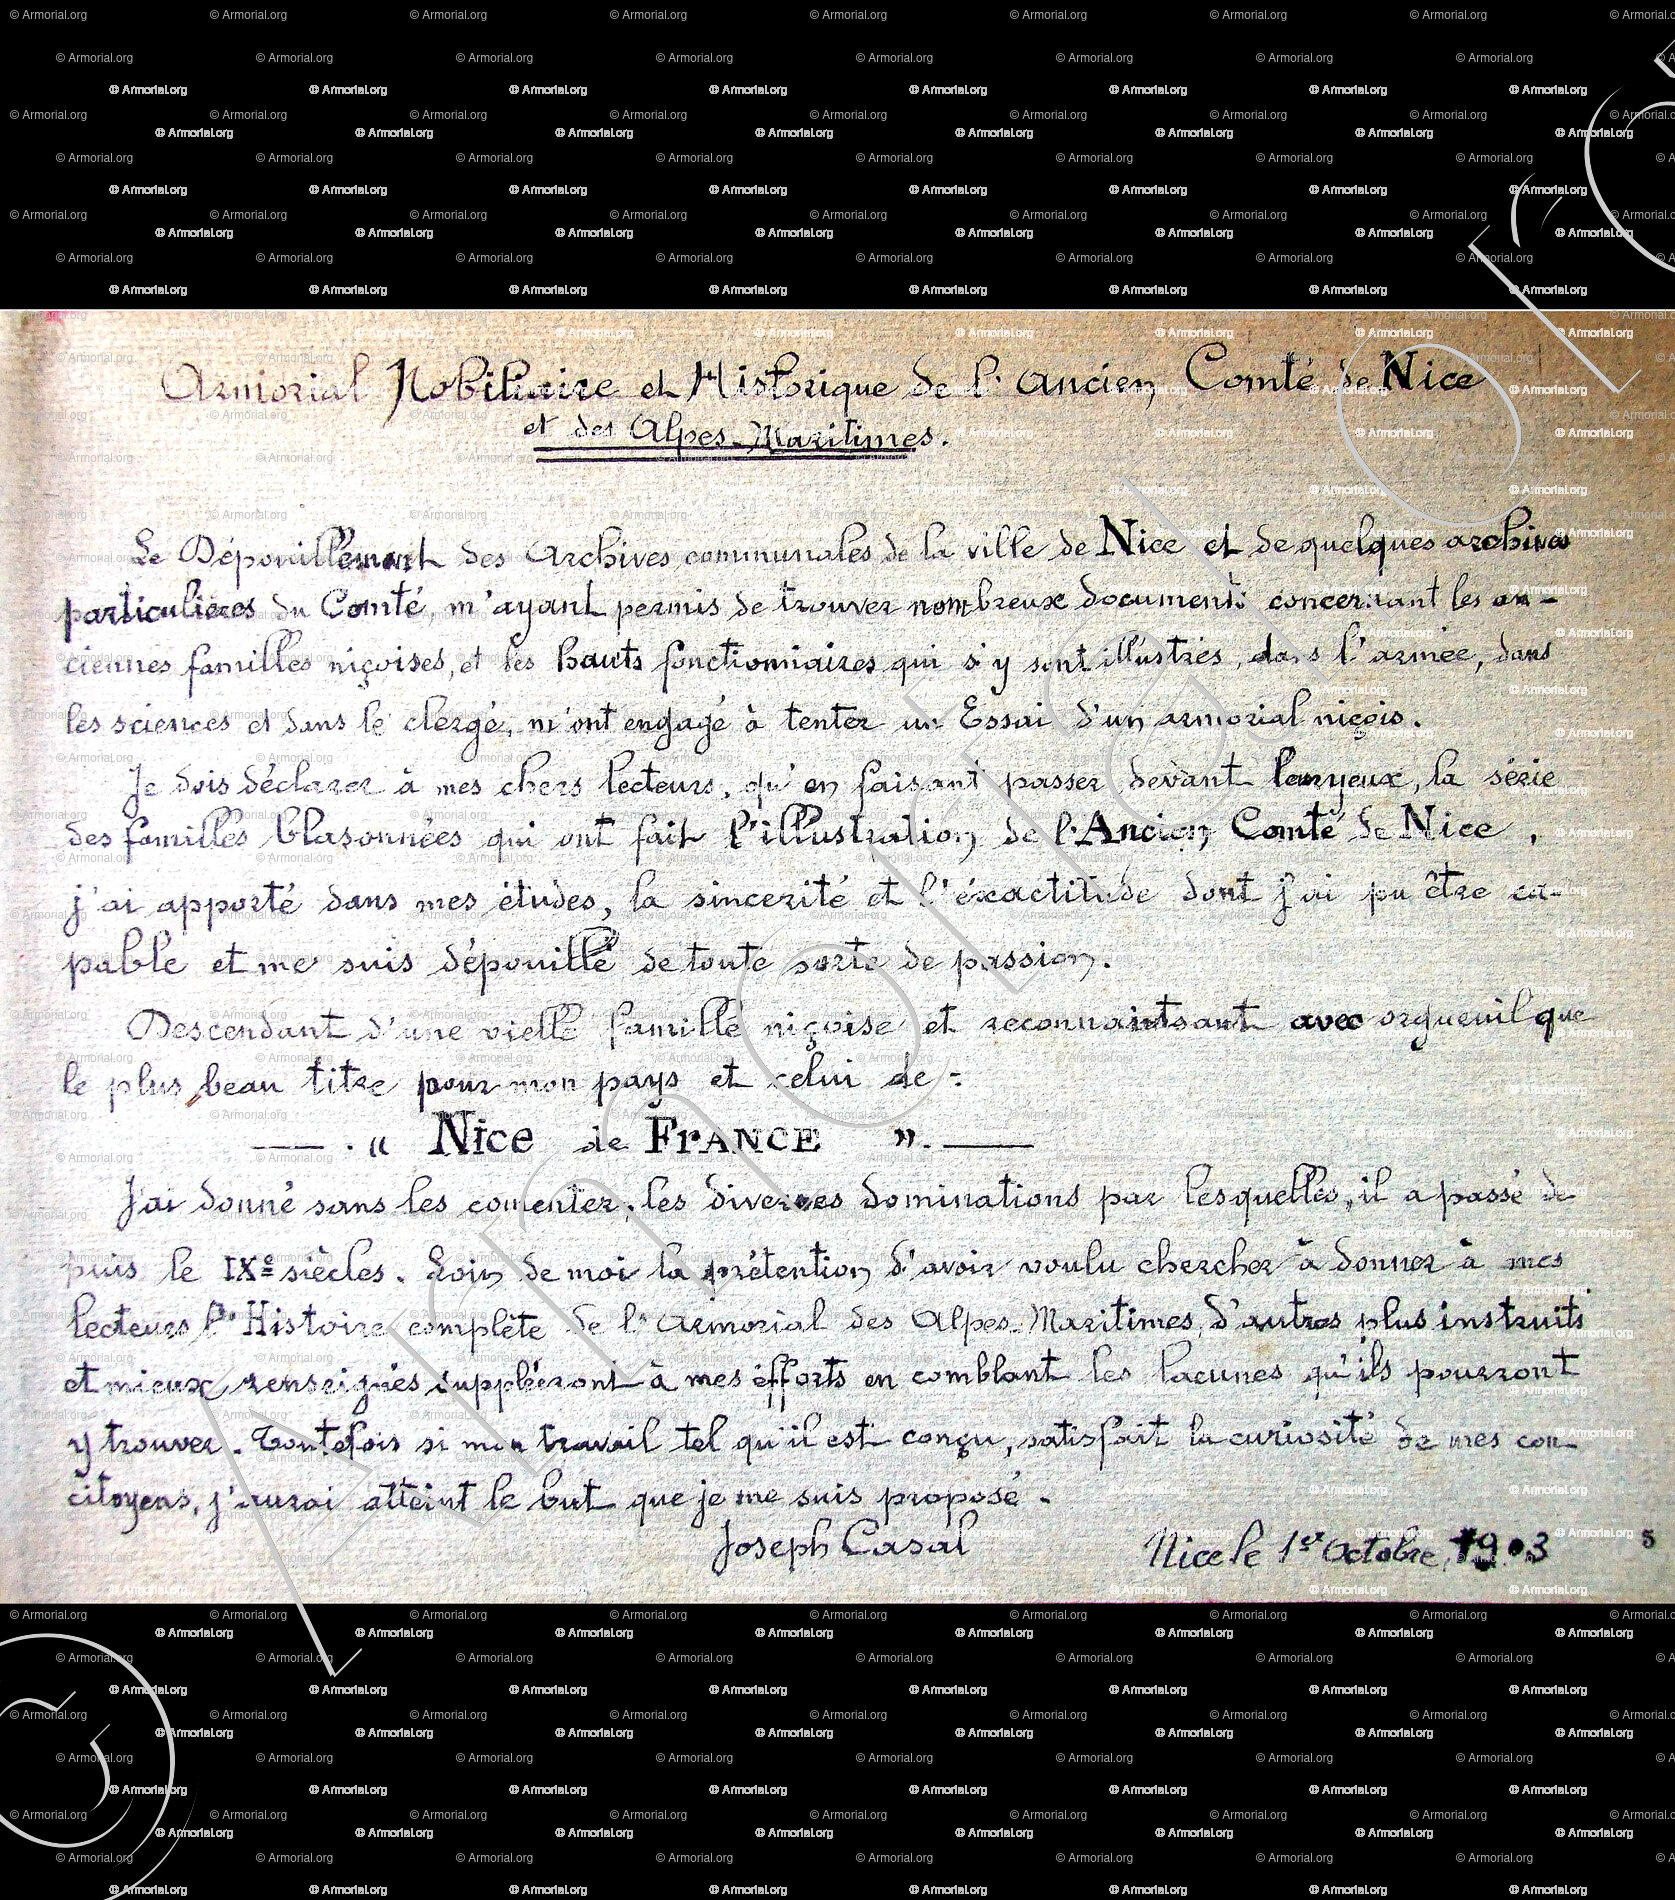 Armorial Nobiliaire et Historique de l'Ancien Comté de Nice
et des Alpes-Maritimes.
Le Dépouillement des Archives communales de la ville de Nice et de quelques archives
particulières du Comté m'ayant permis de trouver nombreux documents concernant les an-
ciennes familles niçoises, et les hauts fonctionniaires qui s'y sont illustrés, dans l'armée, dans
les sciences et dans le clergé, m'ont engagé à tenter un Essai d'un armorial niçois.
Je dois déclarer à mes chers lecteurs, qu'en faisant passer devant leurs yeux, la série
des familles blasonnées qui ont fait l'illustration de l'Ancien Comté de Nice,
j'ai apporté dans mes études, la sincerité et l'éxactitude dont j'ai pu être ca-
pable et me suis dépouillé de toute sorte de passion.
Descendant d'une vielle famille niçoise et reconnaissant avec orgueuil que
le plus beau titre pour mon pays et celui de :
— . « Nice de FrANCE ». —
J'ai donné sans les comenter, les diverses dominations par lesquelles, il a passé de
puis le IXe siècles. Loin de moi la prétention d'avoir voulu chercher à donner à mes
lecteurs l'Histoire complète de l'Armorial des Alpes-Maritimes, d'autres plus instruits
et mieux renseignés suppléeront à mes éfforts en comblant les lacunes qu'ils pourront
y trouver. Toutefois si mon travail tel qu'il est conçu, satisfait la curiosité de mes con-
citoyens, j'aurai atteint le but que je me suis proposé.
Joseph Casal
Nice le 1er Octobre, 1903
5
© Armorial.org